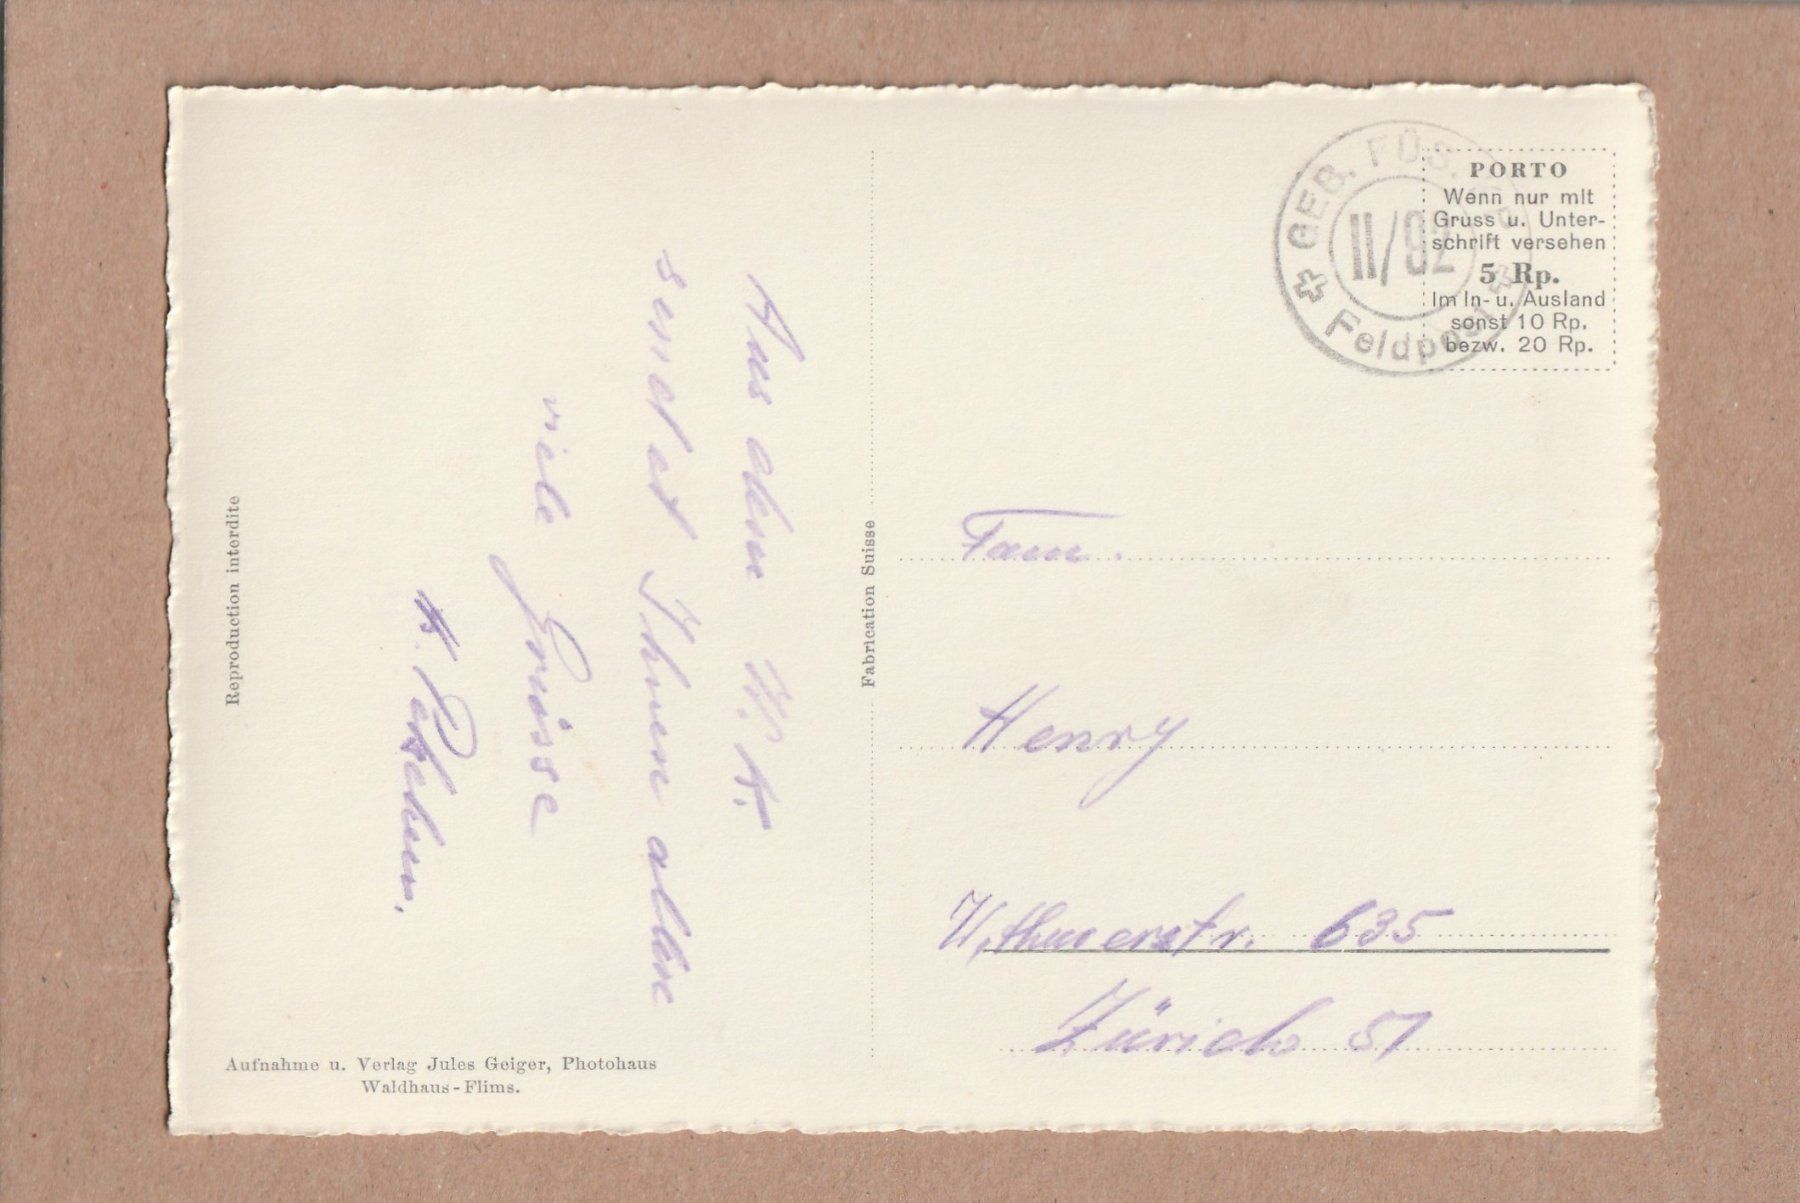 Aus dem W.K.
sendet Ihnen allen
viele Grüsse
Reproduction interdite
Fabrication Suisse
Aufnahme u. Verlag Jules Geiger, Photohaus
Waldhaus-Flims.
GEB. FÜS.
II/92
Feldpost
PORTO
Wenn nur mit
Gruss u. Unter-
schrift versehen
5 Rp.
Im In- u. Ausland
sonst 10 Rp.
bezw. 20 Rp.
Fam.
Henry
635
Zürich 51